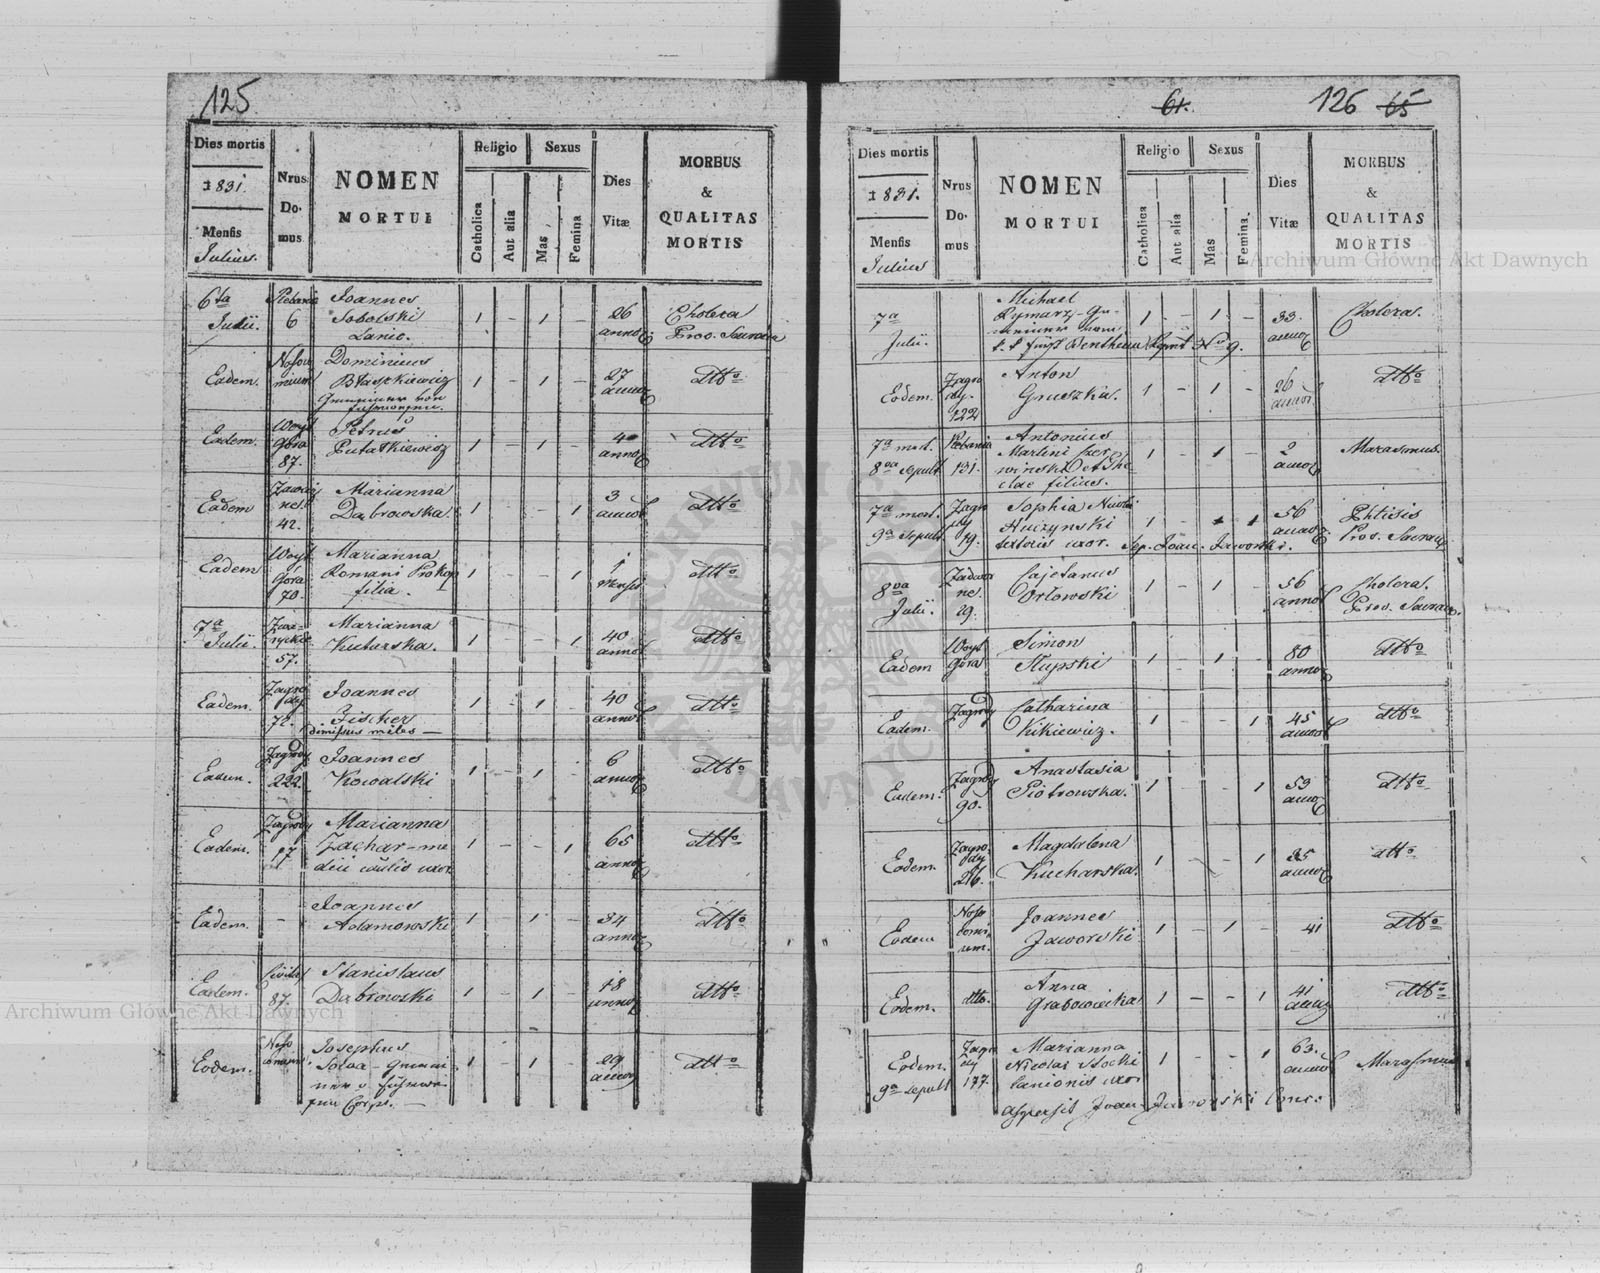 125
Dies mortis
1831.
Mensis
Julius.
Nrus
Do-
mus
NOMEN
MORTUI
Religio
Catholica
Aut alia
Sexus
Mas
Femina
Dies
Vitæ
MORBUS
&
QUALITAS
MORTIS
6ta
Julii.
6
Joannes
Sobolski
Lanio.
1 - 1 -
26
annor
Cholera
Prov. Sacram
Eadem.
Dominicus
Błaszkiewicz
Gemeiner von
1 - 1 -
27
annor
dtto
Eadem.
Woyt
Góra
87.
Petrus
Putatkiewicz
1 - 1 -
40
annor
dtto
Eadem
42.
Marianna
Dąbrowska.
1 - - 1
3
annor
dtto
Eadem
Woyt
Góra
70.
Marianna
Romani Prokop
filia.
1 - - 1
1
Mensis
dtto
7a
Julii.
57.
Marianna
Kucharska.
1 - - 1
40
annor
dtto
Eadem.
Zagro
dy
72.
Joannes
Fischer
dimissus miles —
1 - 1 -
40
annor
dtto
Eadem.
Zagrody
222.
Joannes
Kowalski
1 - 1 -
6
annor
dtto
Eadem.
Zagrody
17
Marianna
Zachar - me
uxor
1 - - 1
65
annor
dtto
Eadem.
-
Joannes
Adamowski
1 - 1 -
34
annor
dtto
Eadem.
87.
Stanislaus
Dąbrowski
1 - 1 -
18
annor
dtto
Eodem.
Josephus
Corps. —
1 - 1 -
29
annor
dtto
61.
126
65
Dies mortis
1831.
Mensis
Julius
Nrus
Do-
mus
NOMEN
MORTUI
Religio
Catholica
Aut alia
Sexus
Mas
Femina.
Dies
Vitæ
MORBUS
&
QUALITAS
MORTIS
7a
Julii.
Michael
Rymarz Ge-
meiner vom
k. k Fürst Bentheim Regmt No 9.
1 - 1 -
33
annor
Cholera.
Eodem.
Zagro
dy.
222
Anton
Gruszka.
1 - 1 -
26
annor.
dtto
7a mort.
8va sepult
Plebania
131.
Antonius
Martini
filius.
1 - 1 -
2
annor
Marasmus.
7a mort.
9a sepult
Zagro
dy
19.
Sophia Nicolai
Huczynski
textoris uxor. Sep. Joan. Jaworski.
1 - 1 1
56
annor
Phtisis
Prov. Sacram
8va
Julii.
29.
Cajetanus
Orłowski
1 - 1 -
56
annor
Cholera.
Prov. Sacram.
Eadem
Woyt
Góra
Simon
Słupski
1 - 1 -
80
annor
dtto
Eadem.
Zagrody
Catharina
Kikiewicz.
1 - - 1
45
annor
dtto
Eadem.
Zagrody
90.
Anastasia
Piotrowska.
1 - - 1
53
annor
dtto
Eodem.
Zagro
dy
216.
Magdalena
Kucharska.
1 - - 1
35
annor
dtto
Eodem
Noso
comi
um.
Joannes
Jaworski
1 - 1 -
41
dtto
Eodem.
dtto.
Anna
Grabowiecka
1 - - 1
41
annor
dtto
Eodem.
9a sepult
Zagro
dy
177.
Marianna
Nicolai Stocki
Lanionis uxor
1 - - 1
63.
annor
Marasmus
aspersit Joan. Jaworski Conc:
Archiwum Główne Akt Dawnych
Archiwum Główne Akt Dawnych